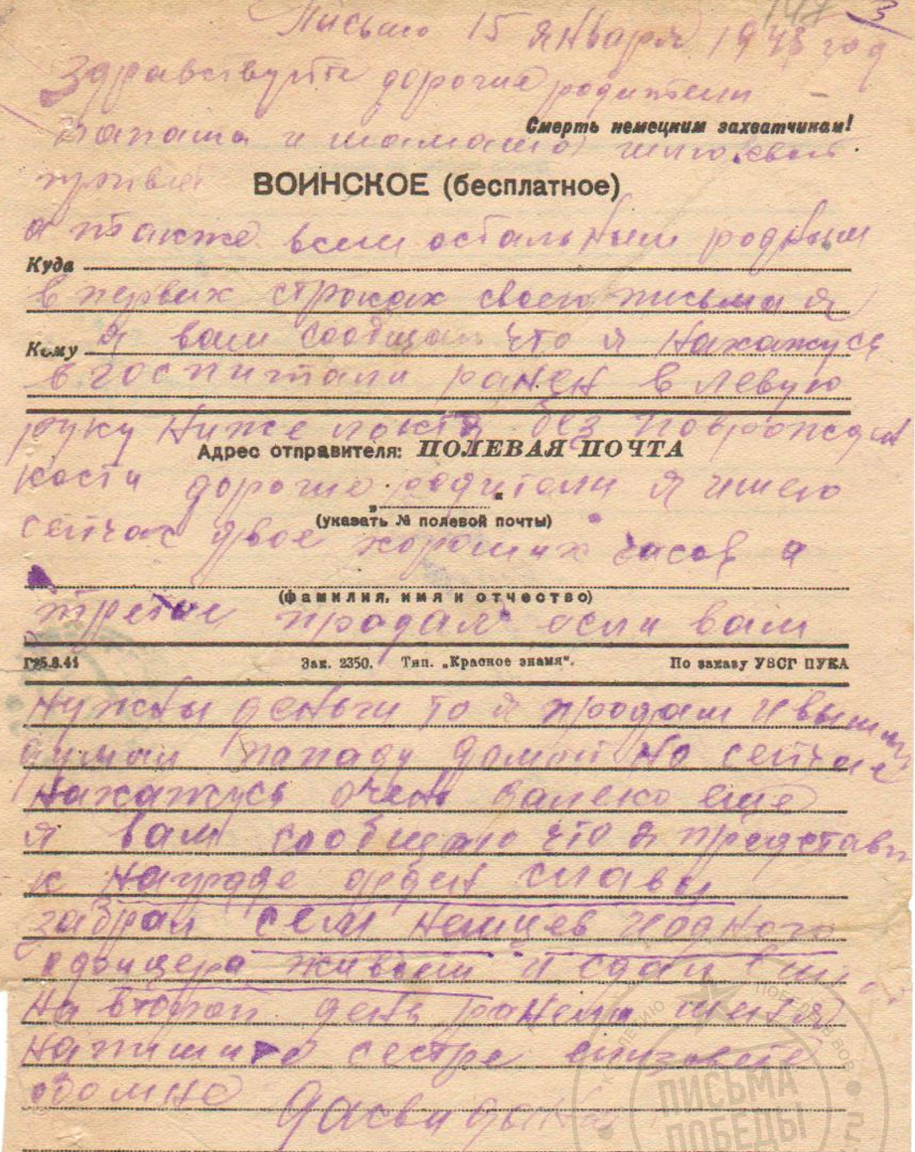 147 3
Письмо 15 января 1945 год
Здравствуйте дорогие родители
папаша и мамаша шлю свой
Смерть немецким захватчикам!
привет
ВОИНСКОЕ (бесплатное)
а также всем остальным родным
Куда
в первых строках своего письма я
Кому я вам сообщаю что я нахажусь
в госпитали ранен в левую
руку ниже локтя без
Адрес отправителя: ПОЛЕВАЯ ПОЧТА
кости дорогие родители я имею
(указать № полевой почты)
сейчас двое хороших часов а
(фамилия, имя и отчество)
третие продал если вам
Г25.8.41 Зак. 2350. Тип. „Красное знамя". По заказу УВСГ ПУКА
нужны деньги то я продам и
думал попаду домой но сейчас
нахажусь очень далеко еще
я вам сообщаю что я представл
к награде орден славы
забрал сем немцев и одного
офицера живым и сдал
на второй день ранели меня
напишите сестре
обомне Дасвидания
ПИСЬМА
ПОБЕДЫ